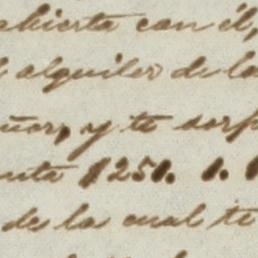 abierta con él,
l alquiler de la
y te sorp
1251. 1.
de la cual te